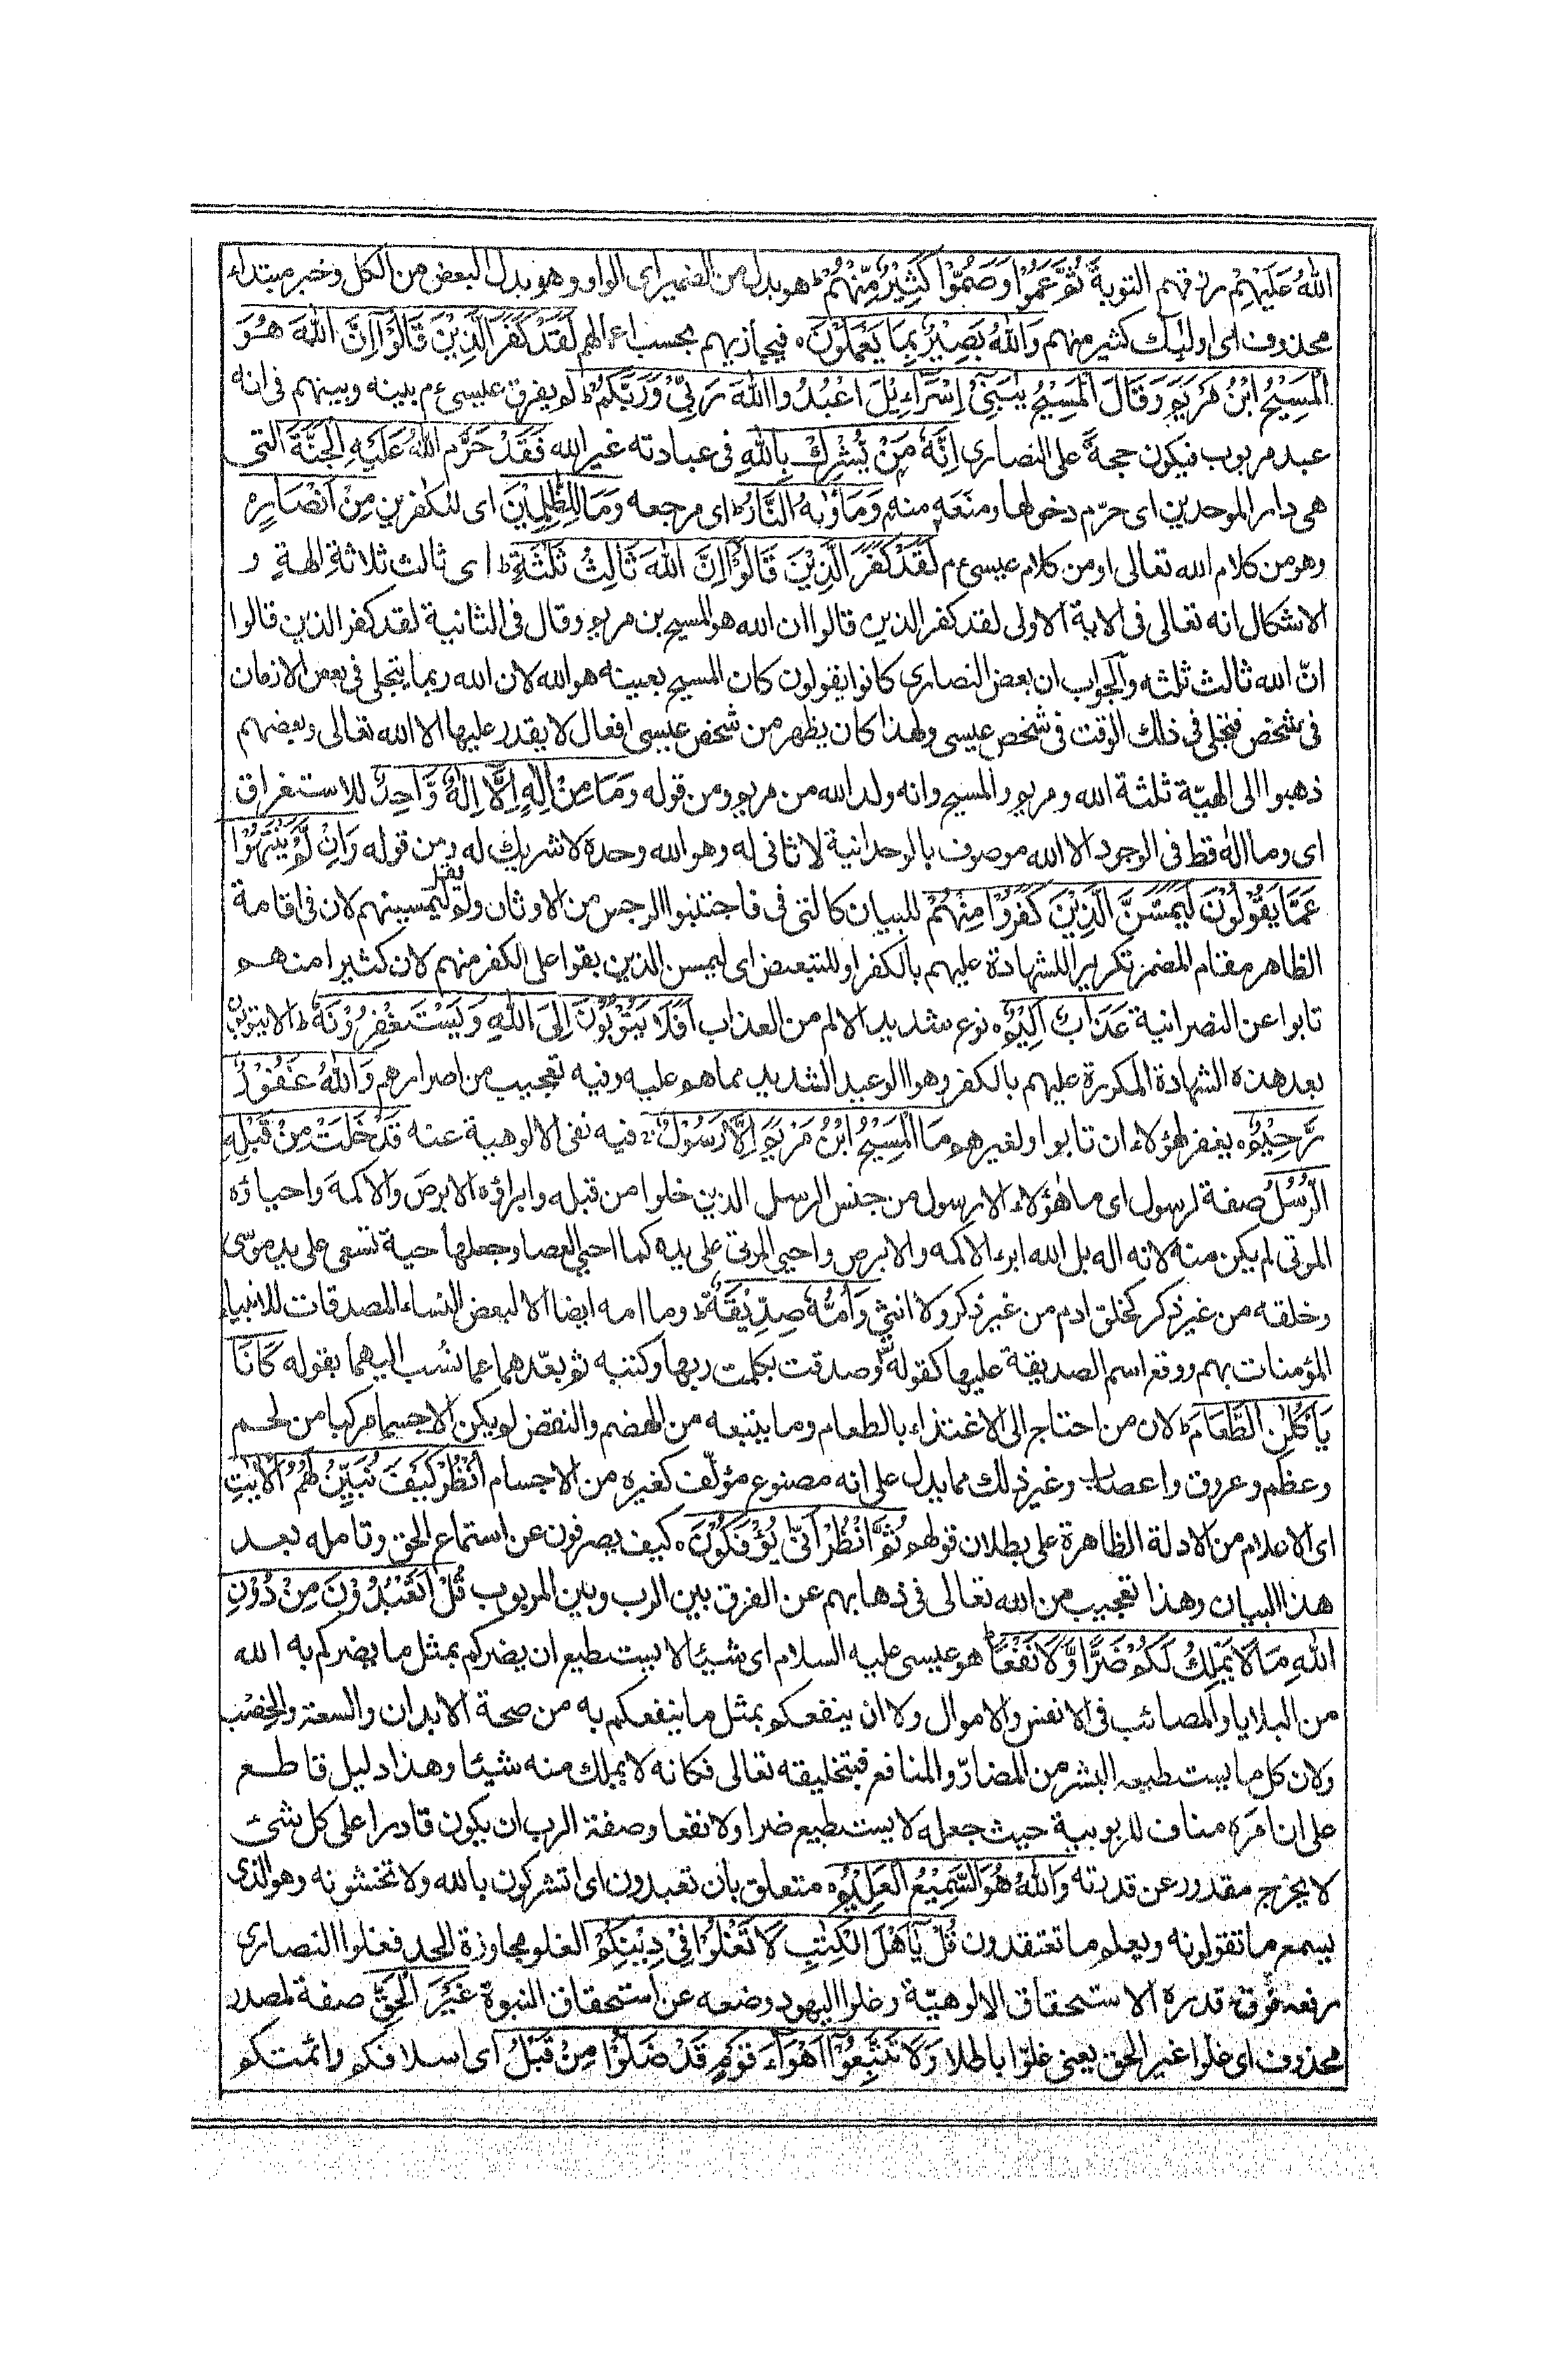 اللهُ عَلَيْهِمْ رزقهم التوبة ثُمَّ عَمُوْا وَصَمُّوْا كَثِيْرٌ مِّنْهُمْ ط هو بدل من الضمير اى الواو وهو بدل البعض من الكل وخبر مبتداء
محذوف اى اولئك كثير منهم وَاللهُ بَصِيْرٌ بِمَا يَعْمَلُوْنَ ه فيجازيهم بحسب اعمالهم لَقَدْ كَفَرَ الَّذِيْنَ قَالُوْا اِنَّ اللهَ هُوَ
الْمَسِيْحُ ابْنُ مَرْيَمَ وَقَالَ الْمَسِيْحُ يٰبَنِيْۤ اِسْرَآءِيْلَ اعْبُدُوا اللهَ رَبِّيْ وَرَبَّكُمْ ط لم يفرق عيسى ع م بينه وبينهم فى انه
عبد مربوب فيكون حجة على النصارى اِنَّهٗ مَنْ يُّشْرِكْ بِاللهِ فى عبادته غير الله فَقَدْ حَرَّمَ اللهُ عَلَيْهِ الْجَنَّةَ التى
هى دار الموحدين اى حرّم دخولها ومنعه منه وَمَاْوٰىهُ النَّارُ ط اى مرجعه وَمَا لِلظّٰلِمِيْنَ اى للكٰفرين مِنْ اَنْصَارٍ ه
وهو من كلام الله تعالى او من كلام عيسى ع م لَقَدْ كَفَرَ الَّذِيْنَ قَالُوْۤا اِنَّ اللهَ ثَالِثُ ثَلٰثَةٍ ط اى ثالث ثلاثة الهة و
الاشكال انه تعالى فى الاية الاولى لقد كفر الذين قالوا ان الله هو المسيح بن مريم وقال فى الثانية لقد كفر الذين قالوا
انّ الله ثالث ثلثه والجواب ان بعض النصارى كانوا يقولون كان المسيح بعينه هو الله لان الله ربما يتجلى فى بعض الازمان
فى شخص فتجلى فى ذلك الوقت فى شخص عيسى ولهذا كان يظهر من شخص عيسى افعال لا يقدر عليها الا الله تعالى وبعضهم
ذهبوا الى الهيّة ثلثة الله ومريم والمسيح وانه ولد الله من مريم ومن قوله وَمَا مِنْ اِلٰهٍ اِلَّاۤ اِلٰهٌ وَّاحِدٌ للاستغراق
اى وما اله قط فى الوجود الا الله موصوف بالوحدانية لا ثانى له وهو الله وحده لا شريك له ومن قوله وَاِنْ لَّمْ يَنْتَهُوْا
عَمَّا يَقُوْلُوْنَ لَيَمَسَّنَّ الَّذِيْنَ كَفَرُوْا مِنْهُمْ للبيان كالتى فى فاجتنبوا الرجس من الاوثان ولم يقل ليمسنهم لان فى اقامة
الظاهر مقام المضمر تكريرا للشهادة عليهم بالكفر او للتبعيض اى ليمسن الذين بقوا على الكفر منهم لان كثيرا منهم
تابوا عن النصرانية عَذَابٌ اَلِيْمٌ ه نوع شديد الالم من العذاب اَفَلَا يَتُوْبُوْنَ اِلَى اللهِ وَيَسْتَغْفِرُوْنَهٗ ط الا يتوبون
بعد هذه الشهادة المكررة عليهم بالكفر وهو الوعيد الشديد مما هو عليه وفيه تعجيب من اصرارهم وَاللهُ غَفُوْرٌ
رَّحِيْمٌ ه يغفر لهؤلاء ان تابوا ولغيرهم مَا الْمَسِيْحُ ابْنُ مَرْيَمَ اِلَّا رَسُوْلٌ ج فيه نفى الالوهية عنه قَدْ خَلَتْ مِنْ قَبْلِهِ
الرُّسُلُ صفة لرسول اى ما هؤلاء الا رسول من جنس الرسل الذين خلوا من قبله وابراؤه الابرص والاكمه واحياؤه
الموتى لم يكن منه لانه اله بل الله ابرء الاكمه والابرص واحيى الموتى على يده كما احيى العصا وجعلها حية تسعى على يد موسى
وخلقه من غير ذكر كخلق ادم من غير ذكر ولا انثى وَاُمُّهٗ صِدِّيْقَةٌ ط وما امه ايضا الا لبعض النساء المصدقات للانبياء
المؤمنات بهم ووقع اسم الصديقة عليها كقوله وصدقت بكلمت ربها وكتبه ثم بعّدهما عما نسب اليهما بقوله كَانَا
يَاْكُلٰنِ الطَّعَامَ ط لان من احتاج الى الاغتذاء بالطعام وما يتبعه من الهضم والنقض لم يكن الا جسما مركبا من لحم
وعظم وعروق واعصاب وغير ذلك مما يدل على انه مصنوع مؤلّف كغيره من الاجسام اُنْظُرْ كَيْفَ نُبَيِّنُ لَهُمُ الْاٰيٰتِ
اى الاعلام من الادلة الظاهرة على بطلان قولهم ثُمَّ انْظُرْ اَنّٰى يُؤْفَكُوْنَ ه كيف يصرفون عن استماع الحق وتامله بعد
هذا البيان وهذا تعجيب من الله تعالى فى ذهابهم عن الفرق بين الرب وبين المربوب قُلْ اَتَعْبُدُوْنَ مِنْ دُوْنِ
اللهِ مَا لَا يَمْلِكُ لَكُمْ ضَرًّا وَّلَا نَفْعًا ط هو عيسى عليه السلام اى شيئا لا يستطيع ان يضركم بمثل ما يضركم به الله
من البلايا والمصائب فى الانفس والاموال ولا ان ينفعكم بمثل ما ينفعكم به من صحة الابدان والسعة والخصب
ولان كل ما يستطيعه البشر من المضارّ والمنافع فبتخليقه تعالى فكانه لا يملك منه شيئا وهذا دليل قاطع
على ان امره مناف للربوبية حيث جعله لا يستطيع ضرا ولا نفعا وصفة الرب ان يكون قادرا على كل شئ
لا يخرج مقدور عن قدرته وَاللهُ هُوَ السَّمِيْعُ الْعَلِيْمُ ه متعلق بأن تعبدون اى اتشركون بالله ولا تخشونه وهو الذى
يسمع ما تقولونه ويعلم ما تعتقدون قُلْ يٰۤاَهْلَ الْكِتٰبِ لَا تَغْلُوْا فِيْ دِيْنِكُمْ الغلو مجاوزة الحد فغلوا النصارى
رفعه فوق قدره الاستحقاق الالوهيّة وغلوا اليهود وضعه عن استحقاق النبوة غَيْرَ الْحَقِّ صفة لمصدر
محذوف اى غلوا غير الحق يعنى غلوّا باطلا وَلَا تَتَّبِعُوْۤا اَهْوَآءَ قَوْمٍ قَدْ ضَلُّوْا مِنْ قَبْلُ اى اسلافكم وائمتكم